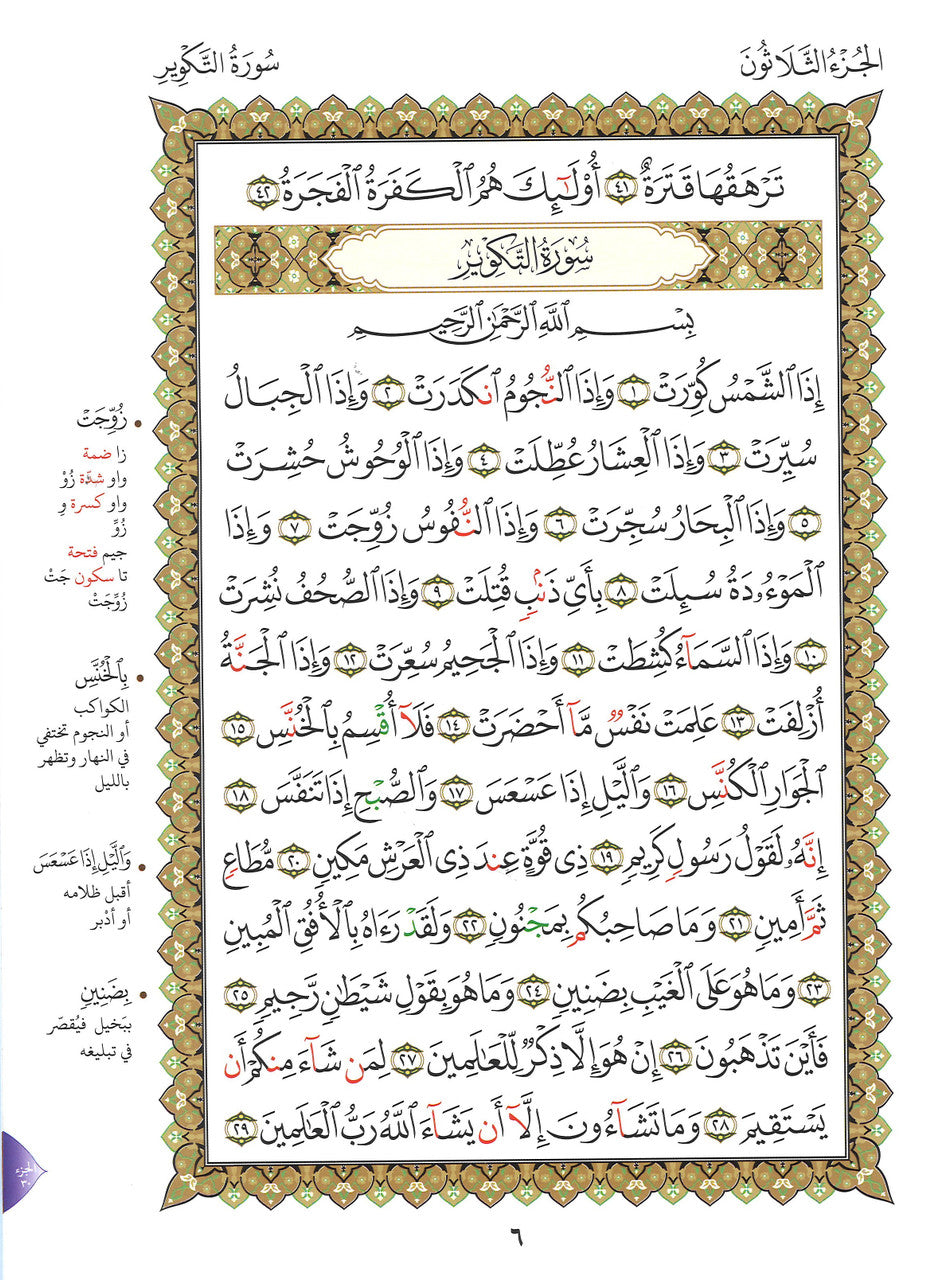 الجُزْءُ الثَّلَاثُونَ
سُورَةُ التَّكْوِيرِ
تَرْهَقُهَا قَتَرَةٌ ٤١ أُوْلَٰٓئِكَ هُمُ ٱلْكَفَرَةُ ٱلْفَجَرَةُ ٤٢
سُورَةُ التَّكْوِيرِ
بِسْمِ ٱللَّهِ ٱلرَّحْمَٰنِ ٱلرَّحِيمِ
إِذَا ٱلشَّمْسُ كُوِّرَتْ ١ وَإِذَا ٱلنُّجُومُ ٱنكَدَرَتْ ٢ وَإِذَا ٱلْجِبَالُ
سُيِّرَتْ ٣ وَإِذَا ٱلْعِشَارُ عُطِّلَتْ ٤ وَإِذَا ٱلْوُحُوشُ حُشِرَتْ
٥ وَإِذَا ٱلْبِحَارُ سُجِّرَتْ ٦ وَإِذَا ٱلنُّفُوسُ زُوِّجَتْ ٧ وَإِذَا
ٱلْمَوْءُۥدَةُ سُئِلَتْ ٨ بِأَىِّ ذَنۢبٍ قُتِلَتْ ٩ وَإِذَا ٱلصُّحُفُ نُشِرَتْ
١٠ وَإِذَا ٱلسَّمَآءُ كُشِطَتْ ١١ وَإِذَا ٱلْجَحِيمُ سُعِّرَتْ ١٢ وَإِذَا ٱلْجَنَّةُ
أُزْلِفَتْ ١٣ عَلِمَتْ نَفْسٌ مَّآ أَحْضَرَتْ ١٤ فَلَآ أُقْسِمُ بِٱلْخُنَّسِ ١٥
ٱلْجَوَارِ ٱلْكُنَّسِ ١٦ وَٱلَّيْلِ إِذَا عَسْعَسَ ١٧ وَٱلصُّبْحِ إِذَا تَنَفَّسَ ١٨
إِنَّهُۥ لَقَوْلُ رَسُولٍ كَرِيمٍ ١٩ ذِى قُوَّةٍ عِندَ ذِى ٱلْعَرْشِ مَكِينٍ ٢٠ مُّطَاعٍ
ثَمَّ أَمِينٍ ٢١ وَمَا صَاحِبُكُم بِمَجْنُونٍ ٢٢ وَلَقَدْ رَءَاهُ بِٱلْأُفُقِ ٱلْمُبِينِ
٢٣ وَمَا هُوَ عَلَى ٱلْغَيْبِ بِضَنِينٍ ٢٤ وَمَا هُوَ بِقَوْلِ شَيْطَٰنٍ رَّجِيمٍ ٢٥
فَأَيْنَ تَذْهَبُونَ ٢٦ إِنْ هُوَ إِلَّا ذِكْرٌ لِّلْعَٰلَمِينَ ٢٧ لِمَن شَآءَ مِنكُمْ أَن
يَسْتَقِيمَ ٢٨ وَمَا تَشَآءُونَ إِلَّآ أَن يَشَآءَ ٱللَّهُ رَبُّ ٱلْعَٰلَمِينَ ٢٩
• زُوِّجَتْ
زا ضمة
واو شدّة زُوْ
واو كسرة وِ
زُوِّ
جيم فتحة
تا سكون جَتْ
زُوِّجَتْ
• بِٱلْخُنَّسِ
الكواكب
أو النجوم تختفي
في النهار وتظهر
بالليل
• وَٱلَّيْلِ إِذَا عَسْعَسَ
أقبل ظلامه
أو أدْبر
• بِضَنِينٍ
ببَخيل فيُقصّر
في تبليغه
الجزء
٣٠
٦